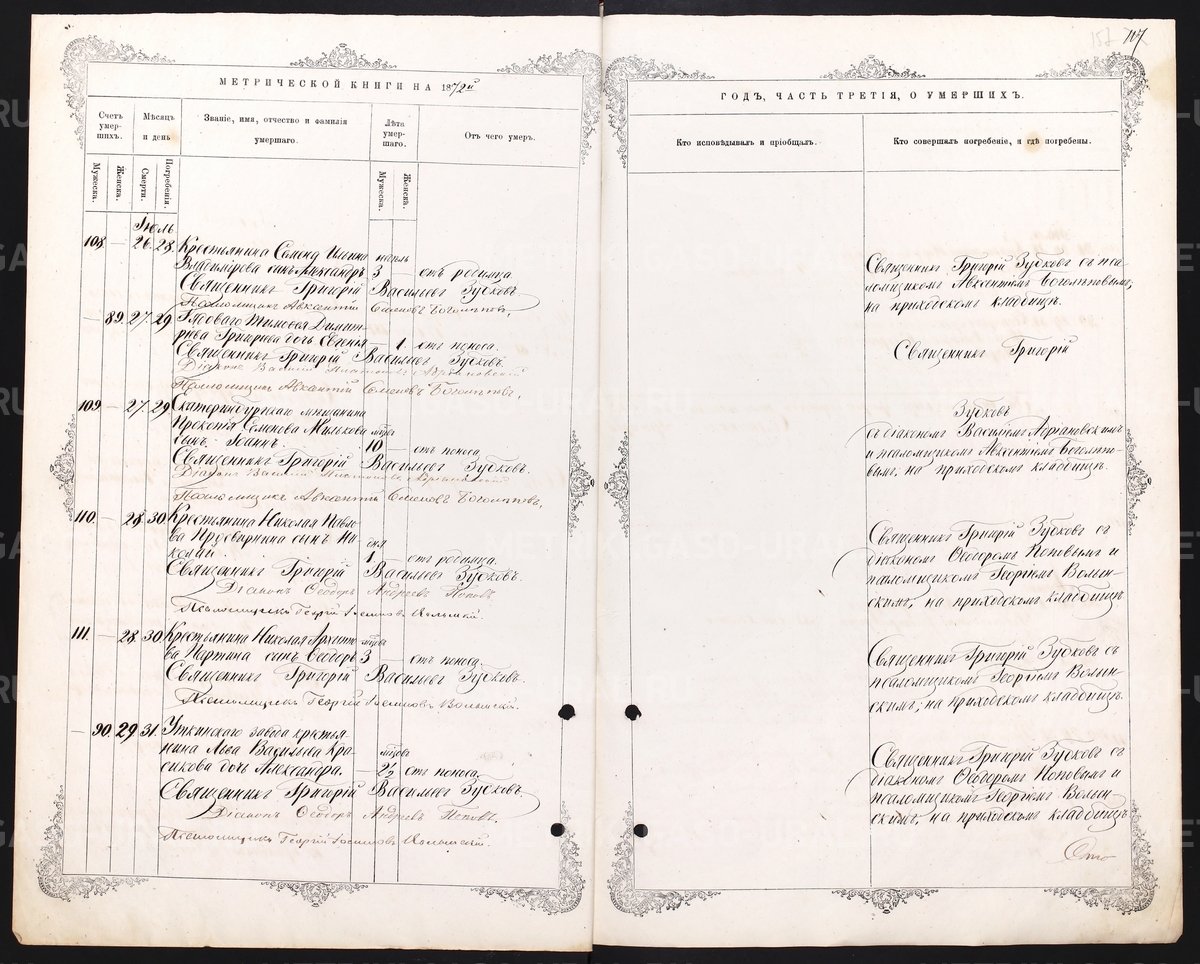 107
МЕТРИЧЕСКОЙ КНИГИ НА 1872й
Счетъ умер-шихъ.
Мѣсяцъ и день
Званіе, имя, отчество и фамилія умершаго.
Лѣта умер-шаго.
Отъ чего умеръ.
Мужеска.
Женска.
Смерти.
Погребенія.
Мужеска.
Женска.
Іюль
108 — 26. 28. Крестьянина
Владимірова сынъ Александръ 3 — отъ родимца.
Священникъ Григорій Васильевъ Зубковъ.
Псаломщикъ Авксентій Семеновъ Боголѣповъ.
— 89. 27. 29
Григорьева дочь Евгенія — 1. отъ поноса.
Священникъ Григорій Васильевъ Зубковъ.
Діаконъ Василій
Псаломщикъ Авксентій Семеновъ Боголѣповъ.
109 — 27. 29 Екатеринбургскаго мѣщанина
Прокопія Семенова Милькова мѣсцовъ
сынъ Іоаннъ. 10 — отъ поноса.
Священникъ Григорій Васильевъ Зубковъ.
Діаконъ Василій
Псаломщикъ Авксентій Семеновъ Боголѣповъ.
110. — 28. 30. Крестьянина Николая Павло-
ва сынъ Ни-
колай. 1 отъ родимца.
Священникъ Григорій Васильевъ Зубковъ.
Діаконъ Ѳеодоръ Андреевъ Поповъ.
Псаломщикъ Георгій
111. — 28. 30. Крестьянина Николая
сынъ Ѳеодоръ 3 — отъ поноса.
Священникъ Григорій Васильевъ Зубковъ.
Псаломщикъ Георгій
— 90. 29 31. Уткинскаго завода крестья-
нина Льва Васильева Кра-
сикова дочь Александра. 2½ отъ поноса.
Священникъ Григорій Васильевъ Зубковъ.
Діаконъ Ѳеодоръ Андреевъ Поповъ.
Псаломщикъ Георгій
ГОДЪ, ЧАСТЬ ТРЕТІЯ, О УМЕРШИХЪ.
Кто исповѣдывалъ и пріобщалъ.
Кто совершалъ погребеніе, и гдѣ погребены.
Священникъ Григорій Зубковъ съ пса-
ломщикомъ Авксентіемъ Боголѣповымъ,
на приходскомъ кладбищѣ.
Священникъ Григорій
Зубковъ
съ діакономъ Василіемъ Адріановскимъ
и псаломщикомъ Авксентіемъ Боголѣпо-
вымъ, на приходскомъ кладбищѣ.
Священникъ Григорій Зубковъ съ
діакономъ Ѳеодоромъ Поповымъ и
псаломщикомъ Георгіемъ Волын-
скимъ, на приходскомъ кладбищѣ
Священникъ Григорій Зубковъ съ
псаломщикомъ Георгіемъ Волын-
скимъ, на приходскомъ кладбищѣ.
Священникъ Григорій Зубковъ съ
діакономъ Ѳеодоромъ Поповымъ и
псаломщикомъ Георгіемъ Волын-
скимъ, на приходскомъ кладбищѣ